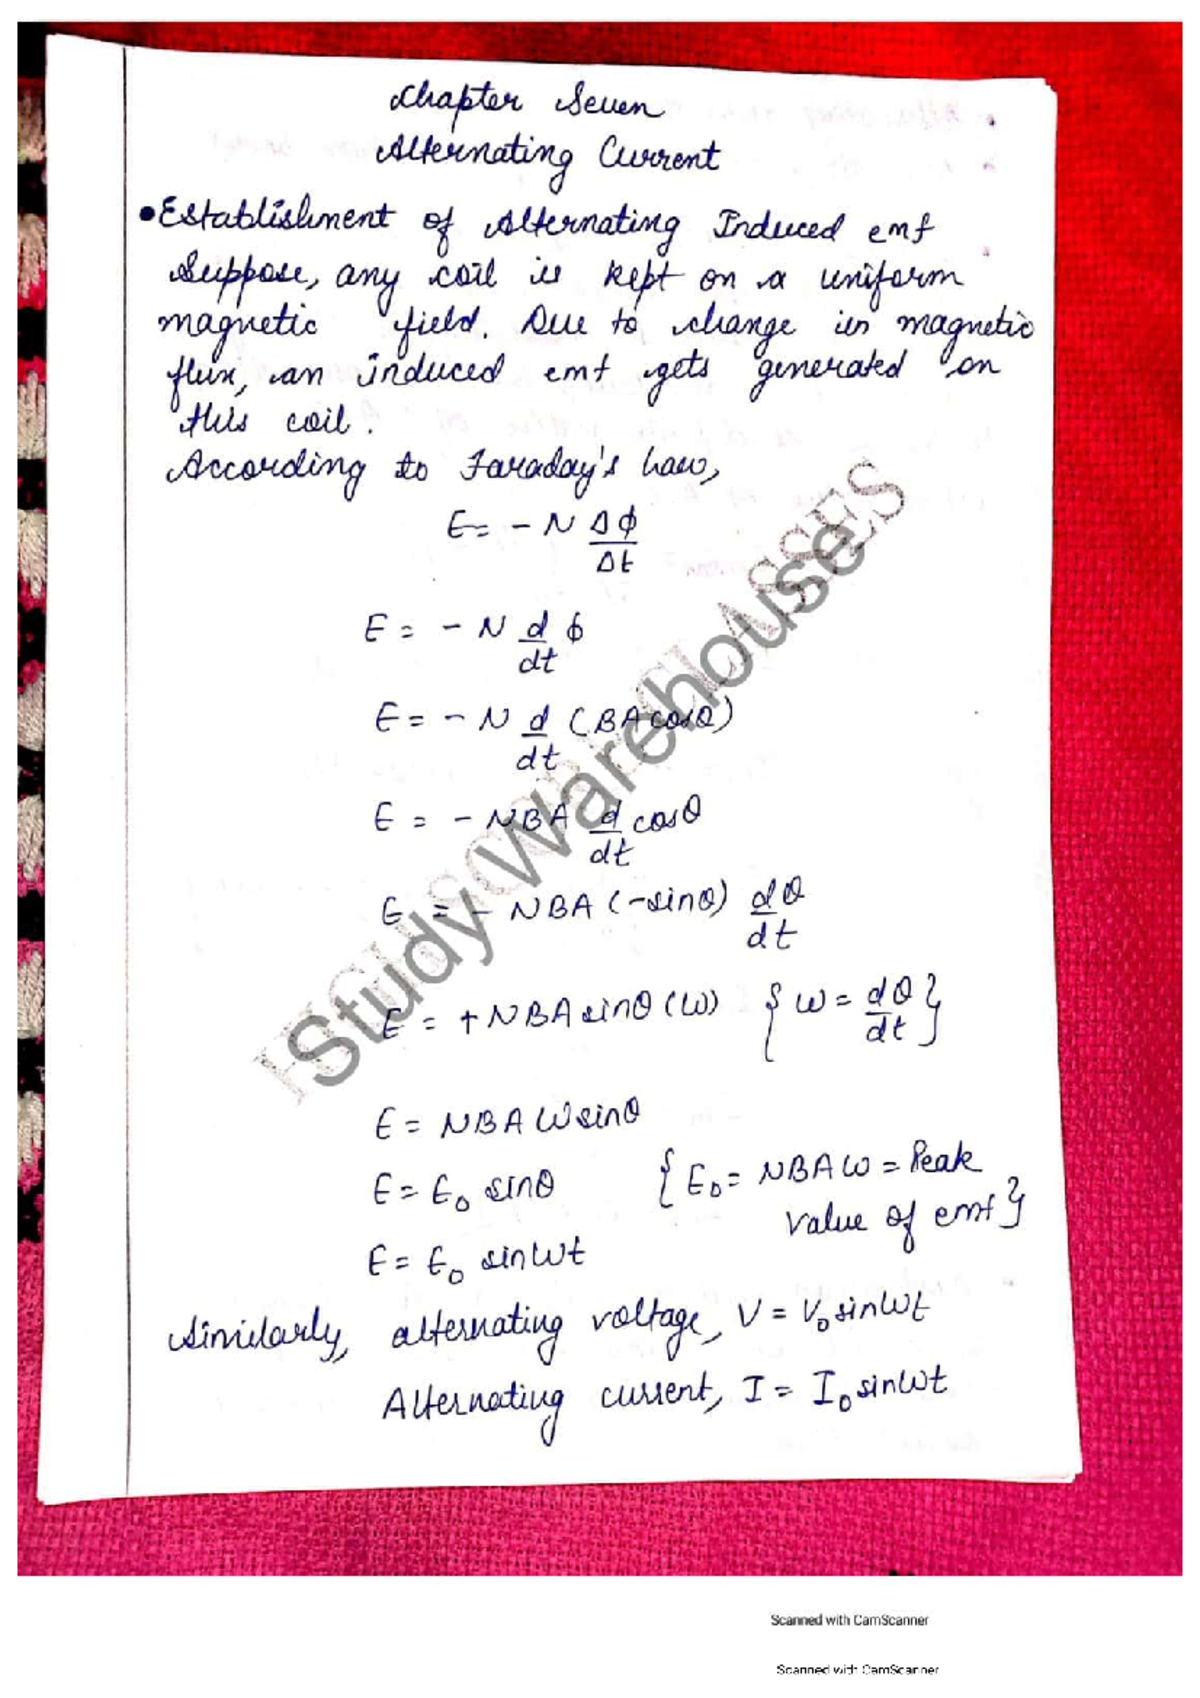 Chapter Seven
Alternating Current
• Establishment of Alternating Induced emf
Suppose, any coil is kept on a uniform
magnetic field. Due to change in magnetic
flux, an induced emf gets generated on
this coil.
According to Faraday's Law,
E = - N Δϕ/Δt
E = - N d/dt ϕ
E = - N d/dt (BA cosθ)
E = - NBA d/dt cosθ
E = - NBA (-sinθ) dθ/dt
E = + NBA sinθ (W) { W = dθ/dt }
E = NBA W sinθ
E = E₀ sinθ { E₀ = NBA W = Peak
value of emf }
E = E₀ sin Wt
Similarly, alternating voltage, V = V₀ sin Wt
Alternating current, I = I₀ sin Wt
Study Warehouse
Scanned with CamScanner
Scanned with CamScanner